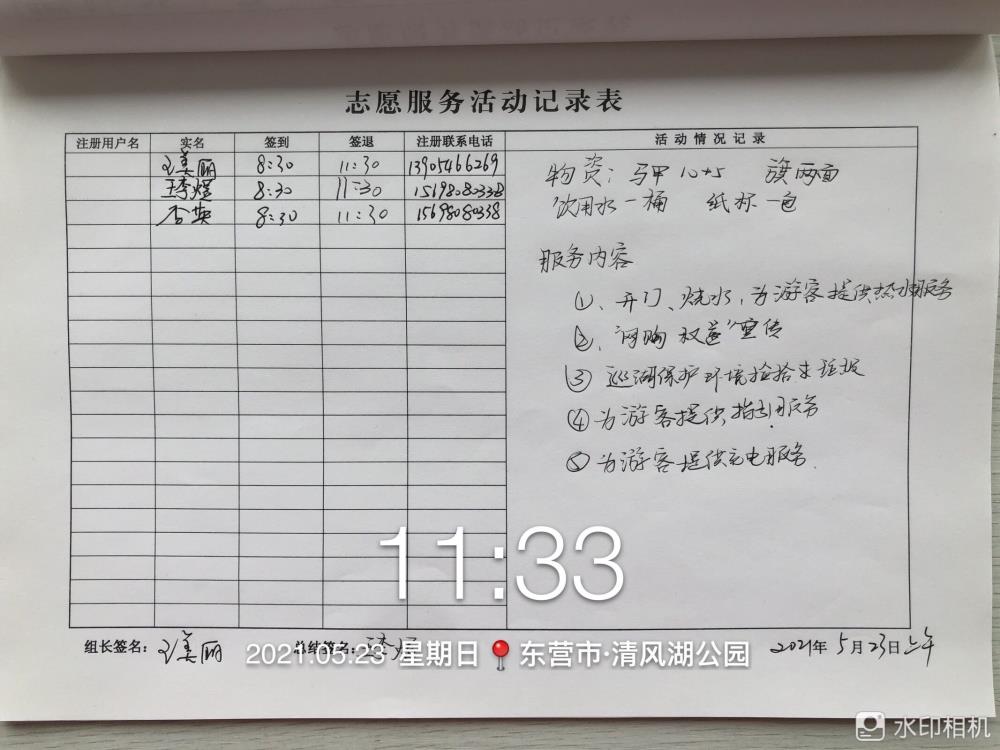 志愿服务活动记录表
注册用户名 实名 签到 签退 注册联系电话 活动情况记录
王美丽 8:30 11:30 13905466269
8:30 11:30 15198080338
杏英 8:30 11:30 15698080338
物资：马甲10+5 旗两面
饮用水一桶 纸杯一包
服务内容
①、开门、烧水，为游客提供热水服务
②、"网购权益"宣传
③ 巡湖保护环境捡拾垃圾
④为游客提供指引服务
⑤为游客提供充电服务.
11:33
组长签名：王美丽 总结签名： 2021年5月23日上午
2021.05.23 星期日 东营市·清风湖公园
水印相机